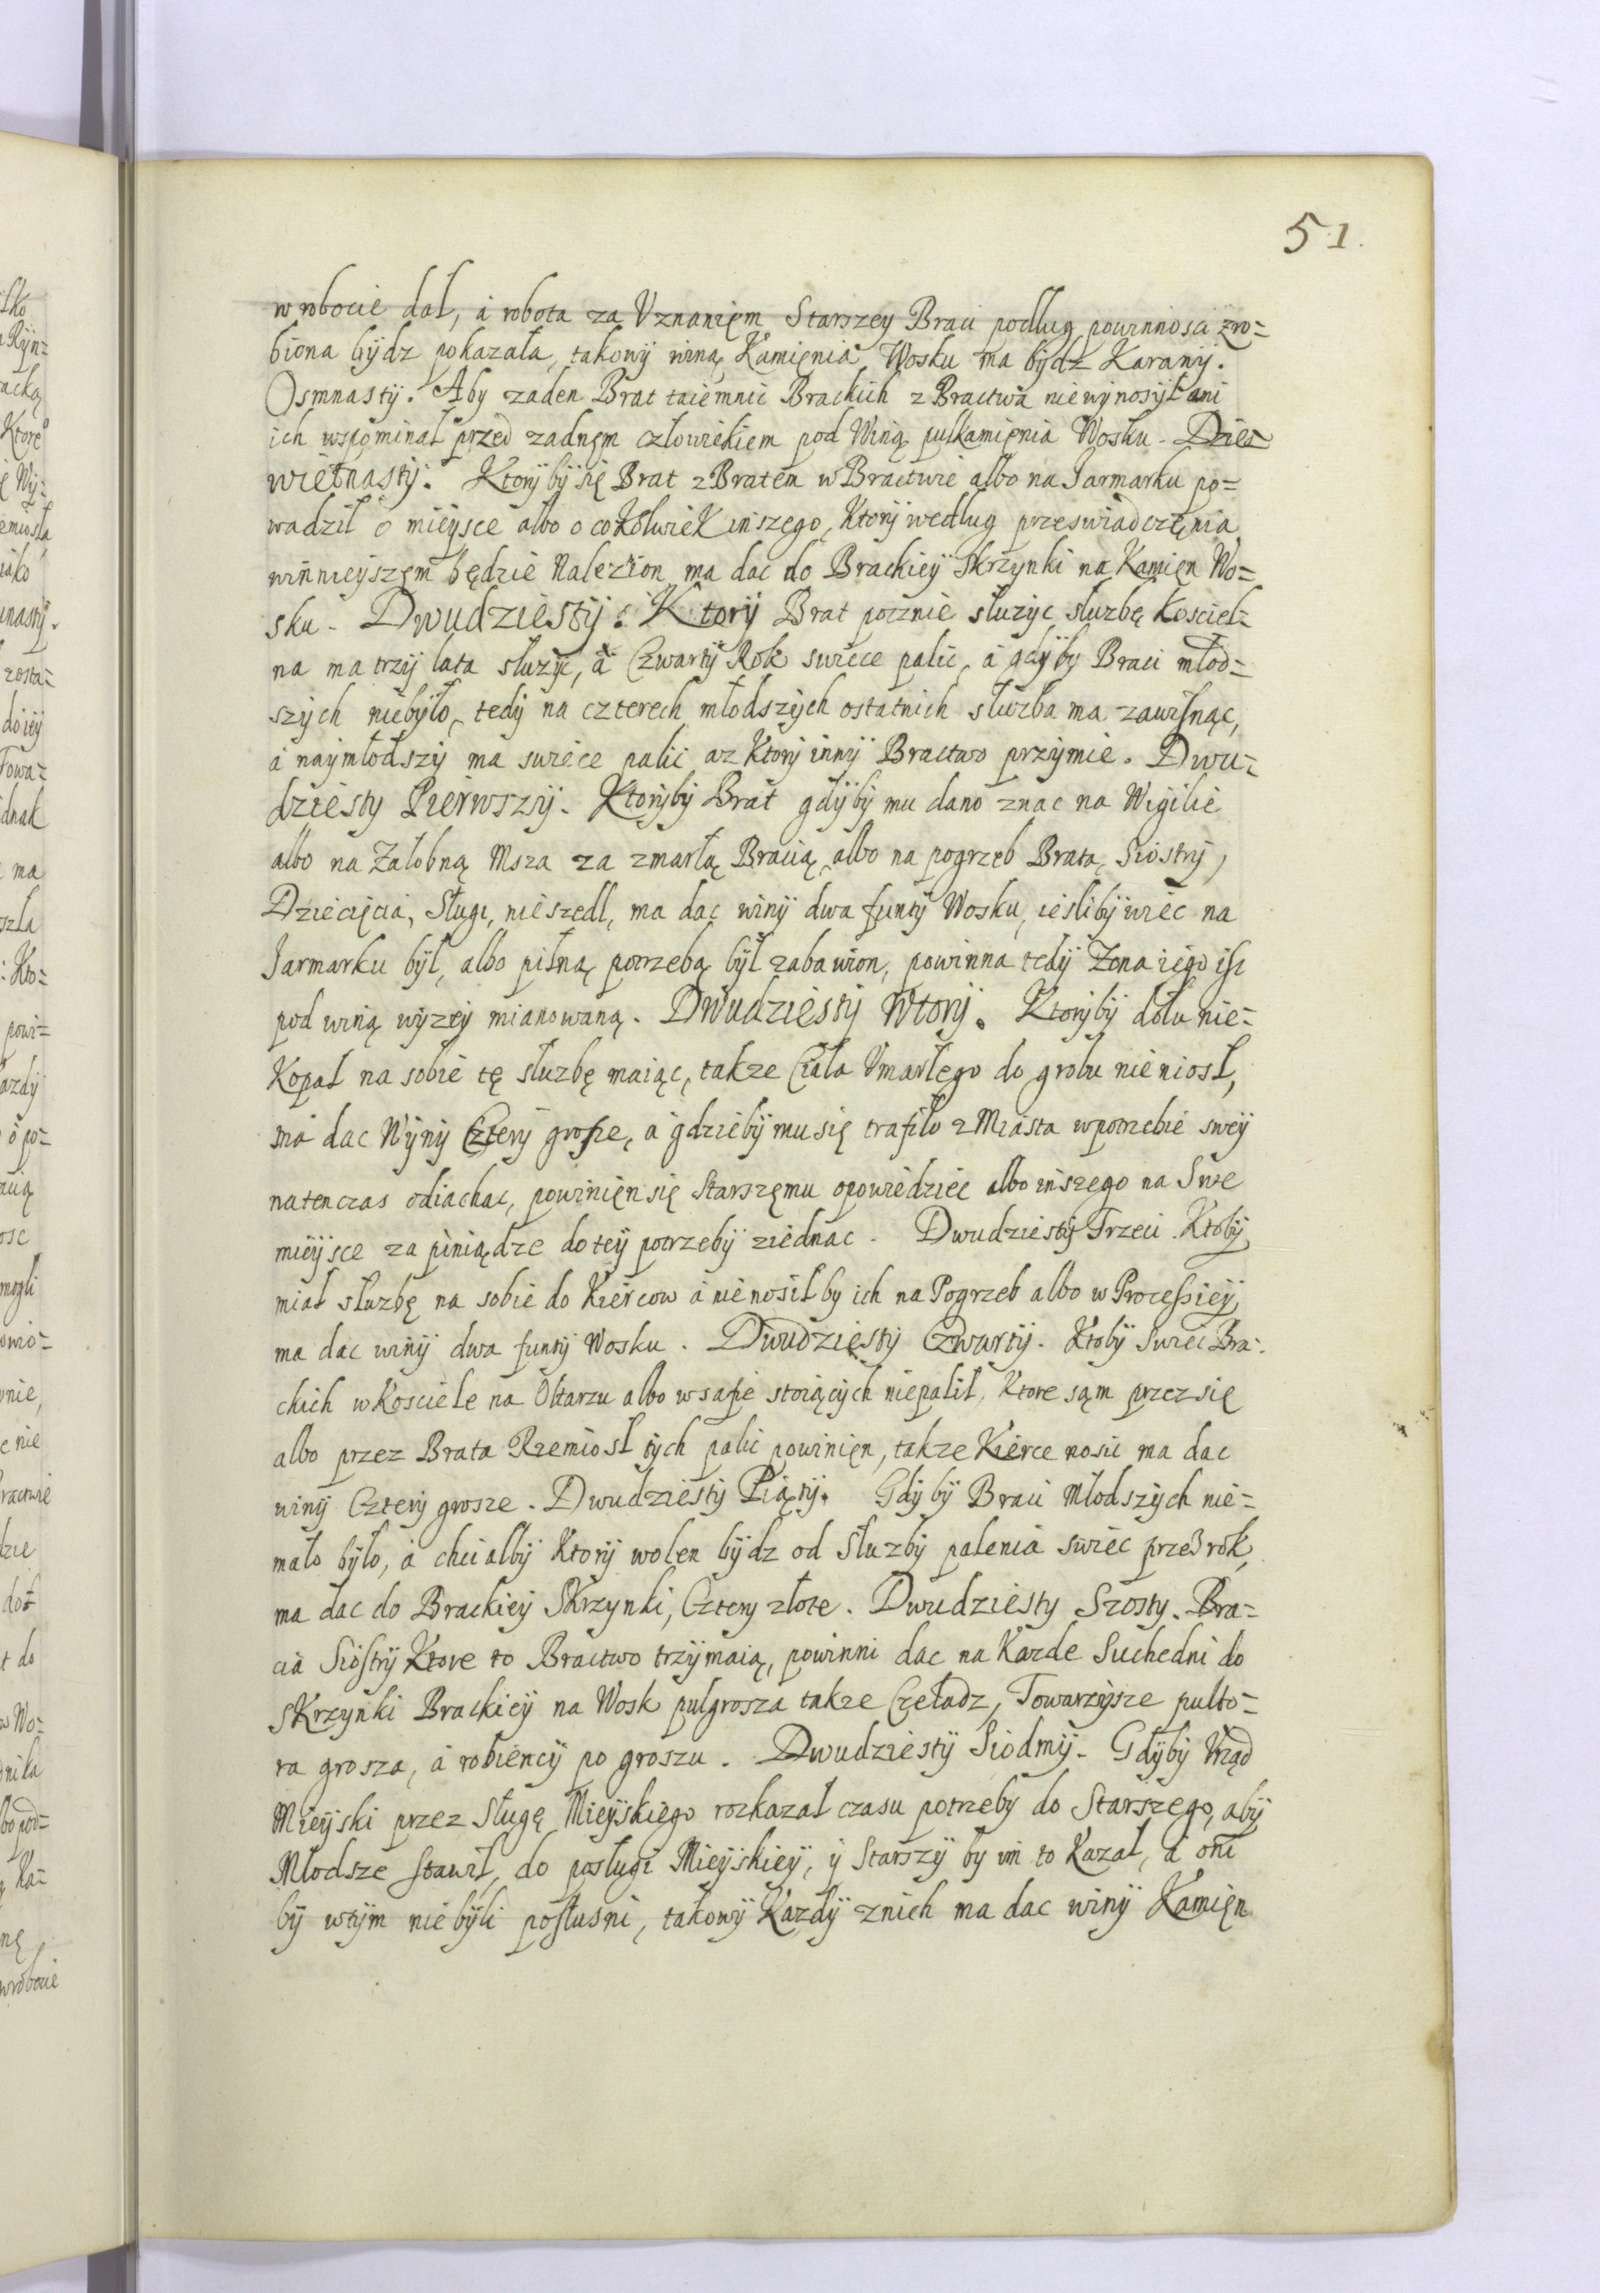 51.
w robocie dał, á robota za Vznanięm Starszey Braci podług powinnosci zro=
biona bydz pokazała, takowy winą Kamięnia Wosku ma bydz Karany.
Osmnasty. Aby zaden Brat taiemnic Brackich z Bractwa niewynosył ani
ich wspominał przed zadnęm człowiekiem pod Winą pułkamięnia Wosku. Dzie=
więtnasty. Ktorybysię Brat z Bratem w Bractwie albo na Jarmarku po=
wadził o mieysce albo o cokolwiek inszego, Ktory według przeswiadczęnia
winnieyszęm będzie Nalezion ma dac do Brackiey Skrzynki na Kamięn Wo=
sku. Dwudziesty. Ktory Brat pocznie słuzyc słuzbę Kosciel=
na ma trzy lata słuzyc, á Czwarty Rok swiece palic, á gdyby Braci młod=
szych niebyło, tedy na czterech młodszych ostatnich słuzba ma zawisnąc,
á naymłodszy ma swiece palic az Ktory inny Bractwo przymie. Dwu=
dziesty Pierwszy. Ktoryby Brat gdyby mu dano znac na Wigilie
albo na Załobną Msza za zmarłą Bracią albo na pogrzeb Brata, Siostry,
Dziecięcia, Sługi, nieszedl, ma dac winy dwa funty Wosku, iesliby wiec na
Jarmarku był, albo pilną potrzebą był zabawion, powinna tedy Zona iego isc
pod winą wyzey mianowaną. Dwudziesty Wtory. Ktoryby dołu nie=
Kopał na sobie tę słuzbę maiąc, takze Ciała Vmarłego do grobu nieniosł,
ma dac Wyny Cztery grosze, á gdzieby musię trafiło z Miasta wpotrzebie swey
natenczas odiachac, powinięnsię Starszęmu opowiedziec albo inszego na Swe
mieysce za pieniądze do tey potrzeby ziednac. Dwudziesty Trzeci. Ktoby
miał słuzbę na sobie do Kiercow á nienosiłby ich na Pogrzeb albo w Processiey
ma dac winy dwa funty Wosku. Dwudziesty Czwarty. Ktoby Swiec Bra=
ckich w Kosciele na Ołtarzu albo wsafie stoiących niepalił, Ktore sąm przez się
albo przez Brata Rzemiosł tych palic powinięn, takze Kierce nosic ma dac
winy Cztery grosze. Dwudziesty Piąty. Gdyby Braci Młodszych nie=
mało było, á chciałby Ktory wolen bydz od Słuzby palenia swiec przez rok,
ma dac do Brackiey Skrzynki, Cztery złote. Dwudziesty Szosty. Bra=
cia Siostry Ktore to Bractwo trzymaią, powinni dac na Kazde Suchedni do
Skrzynki Brackiey na Wosk pułgrosza takze Czeladz, Towarzysze pułto=
ra grosza, á robiency po groszu. Dwudziesty Siodmy. Gdyby Vrząd
Mieyski przez Sługę Mieyskiego rozkazał czasu potrzeby do Starszego, aby
Młodsze stawił, do posługi Mieyskiey, y Starszy by im to Kazał, á oni
by wtym niebyli posłusni, takowy Kazdy znich ma dac winy Kamięn